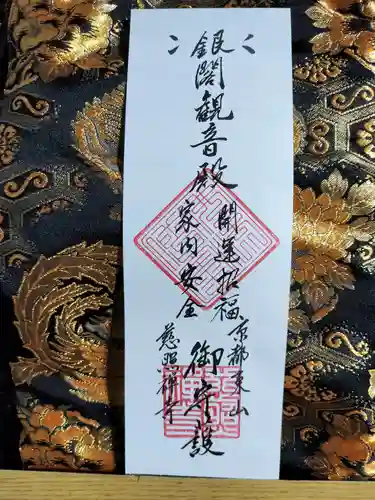 銀閣観音殿 御守護
開運招福
京都東山
家内安全
慈照禅寺